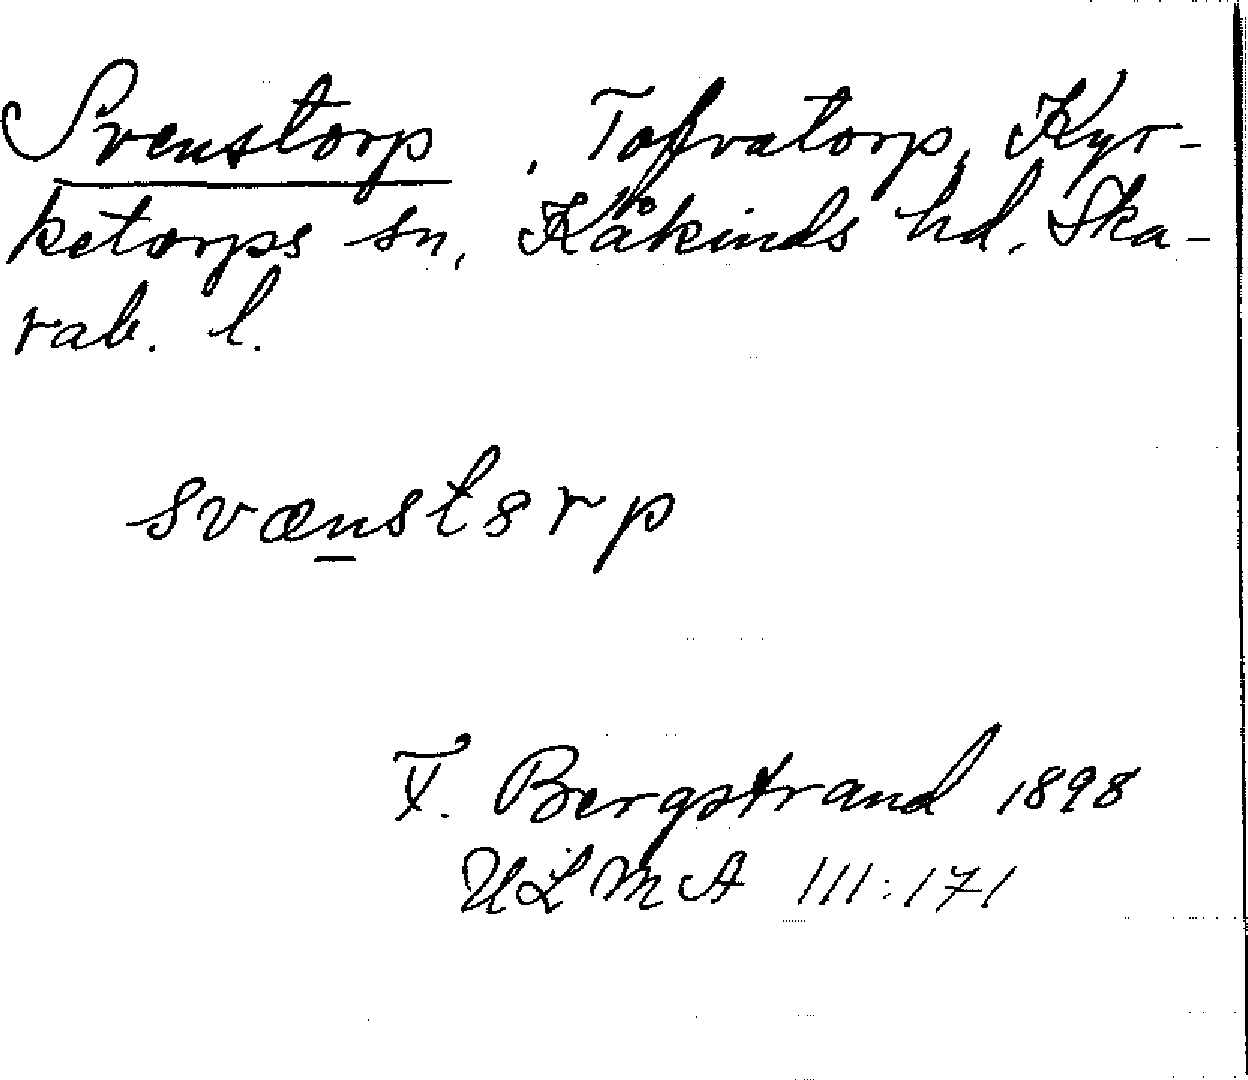 Svenstorp, Tofvatorp, Kyr-
ketorps sn, Kåkinds hd. Ska-
rab. l.
svænstsrp
F. Bergstrand 1898
ULMA 111:171